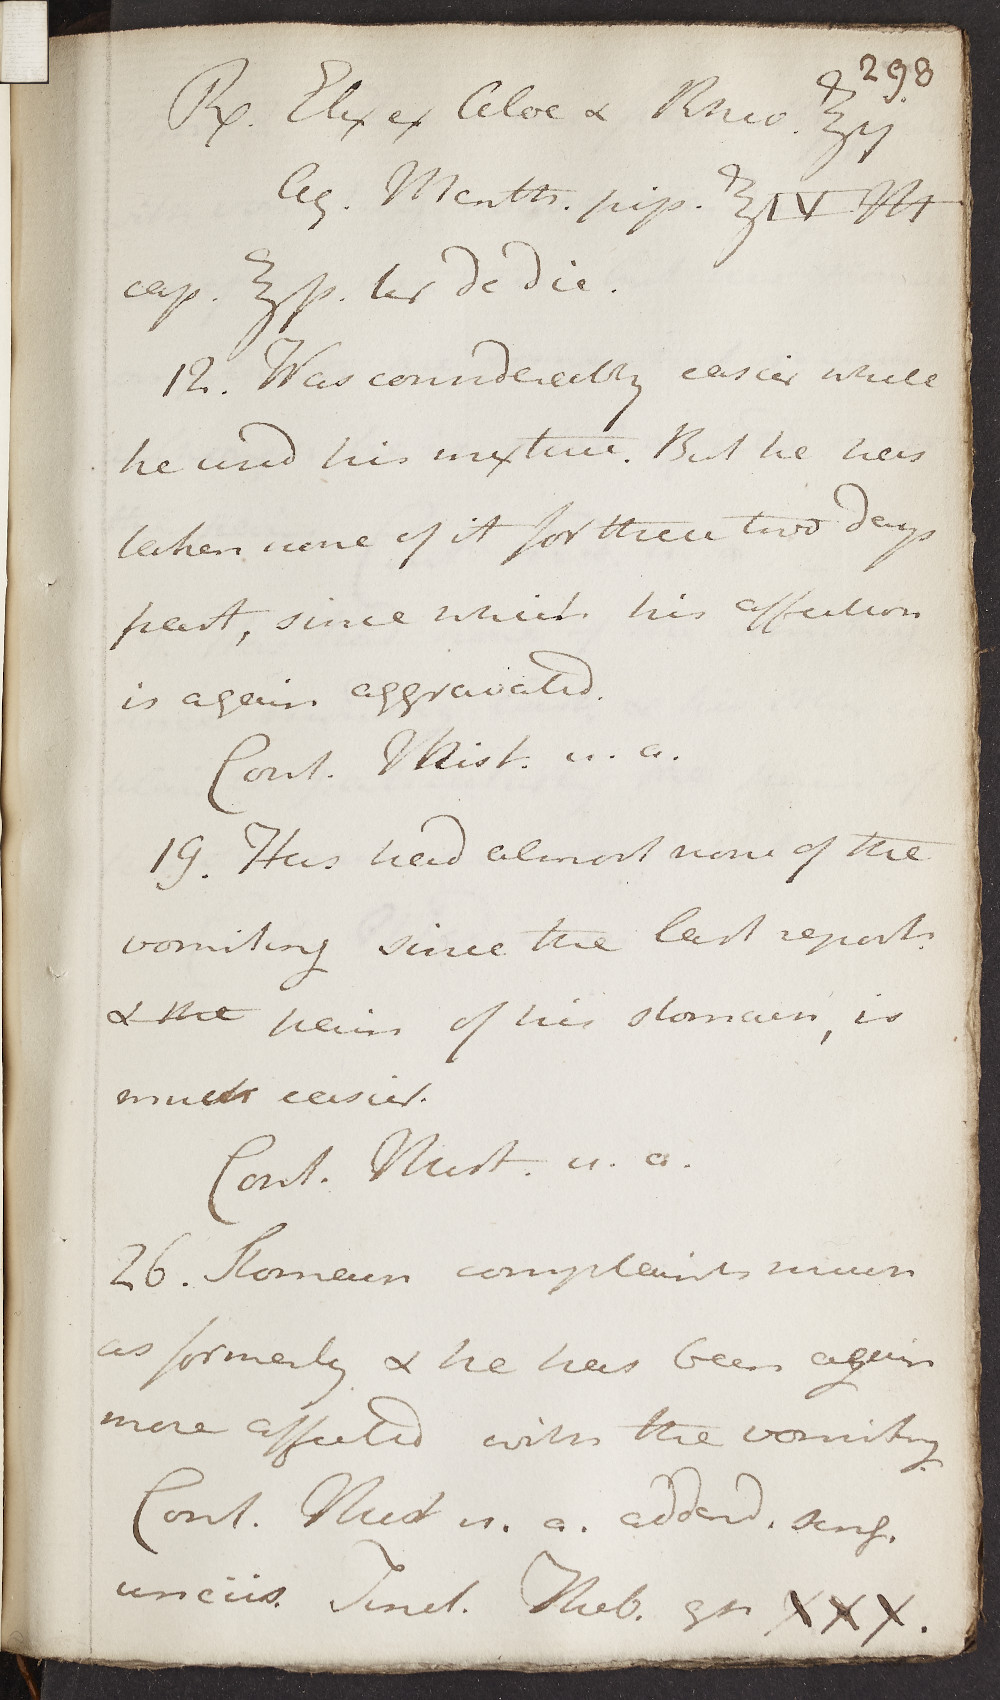 298
Rx. Elix ex Aloe & Rheo. ℥ij
Aq. Menth. pip. ℥IV M
cap. ℥ſs. ter de die.
12. Was considerably easier while
he used his mixture. But he has
taken none of it for these two days
past, since which his affection
is again aggravated.
Cont. Mist. u. a.
19. Has had almost none of the
vomiting since the last report
& the pain of his stomach, is
much easier.
Cont. Mist. u. a.
26. Stomach complaints much
as formerly & he has been again
more affected with the vomiting
Cont. Mist u. a. addend. sing.
unciis. Tinct. Theb. gtt XXX.